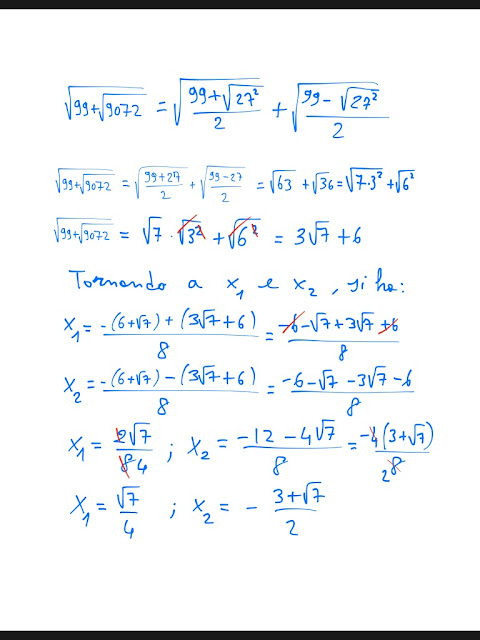 √(99+√9072) = √((99+√27²)/2) + √((99-√27²)/2)
√(99+√9072) = √((99+27)/2) + √((99-27)/2) = √63 + √36 = √(7·3²) + √6²
√(99+√9072) = √7 · √3² + √6² = 3√7 + 6
Tornando a x₁ e x₂, si ha:
x₁ = (-(6+√7) + (3√7+6))/8 = (-6-√7+3√7+6)/8
x₂ = (-(6+√7) - (3√7+6))/8 = (-6-√7-3√7-6)/8
x₁ = 2√7/8 4 ; x₂ = (-12-4√7)/8 = -4(3+√7)/8 2
x₁ = √7/4 ; x₂ = - (3+√7)/2